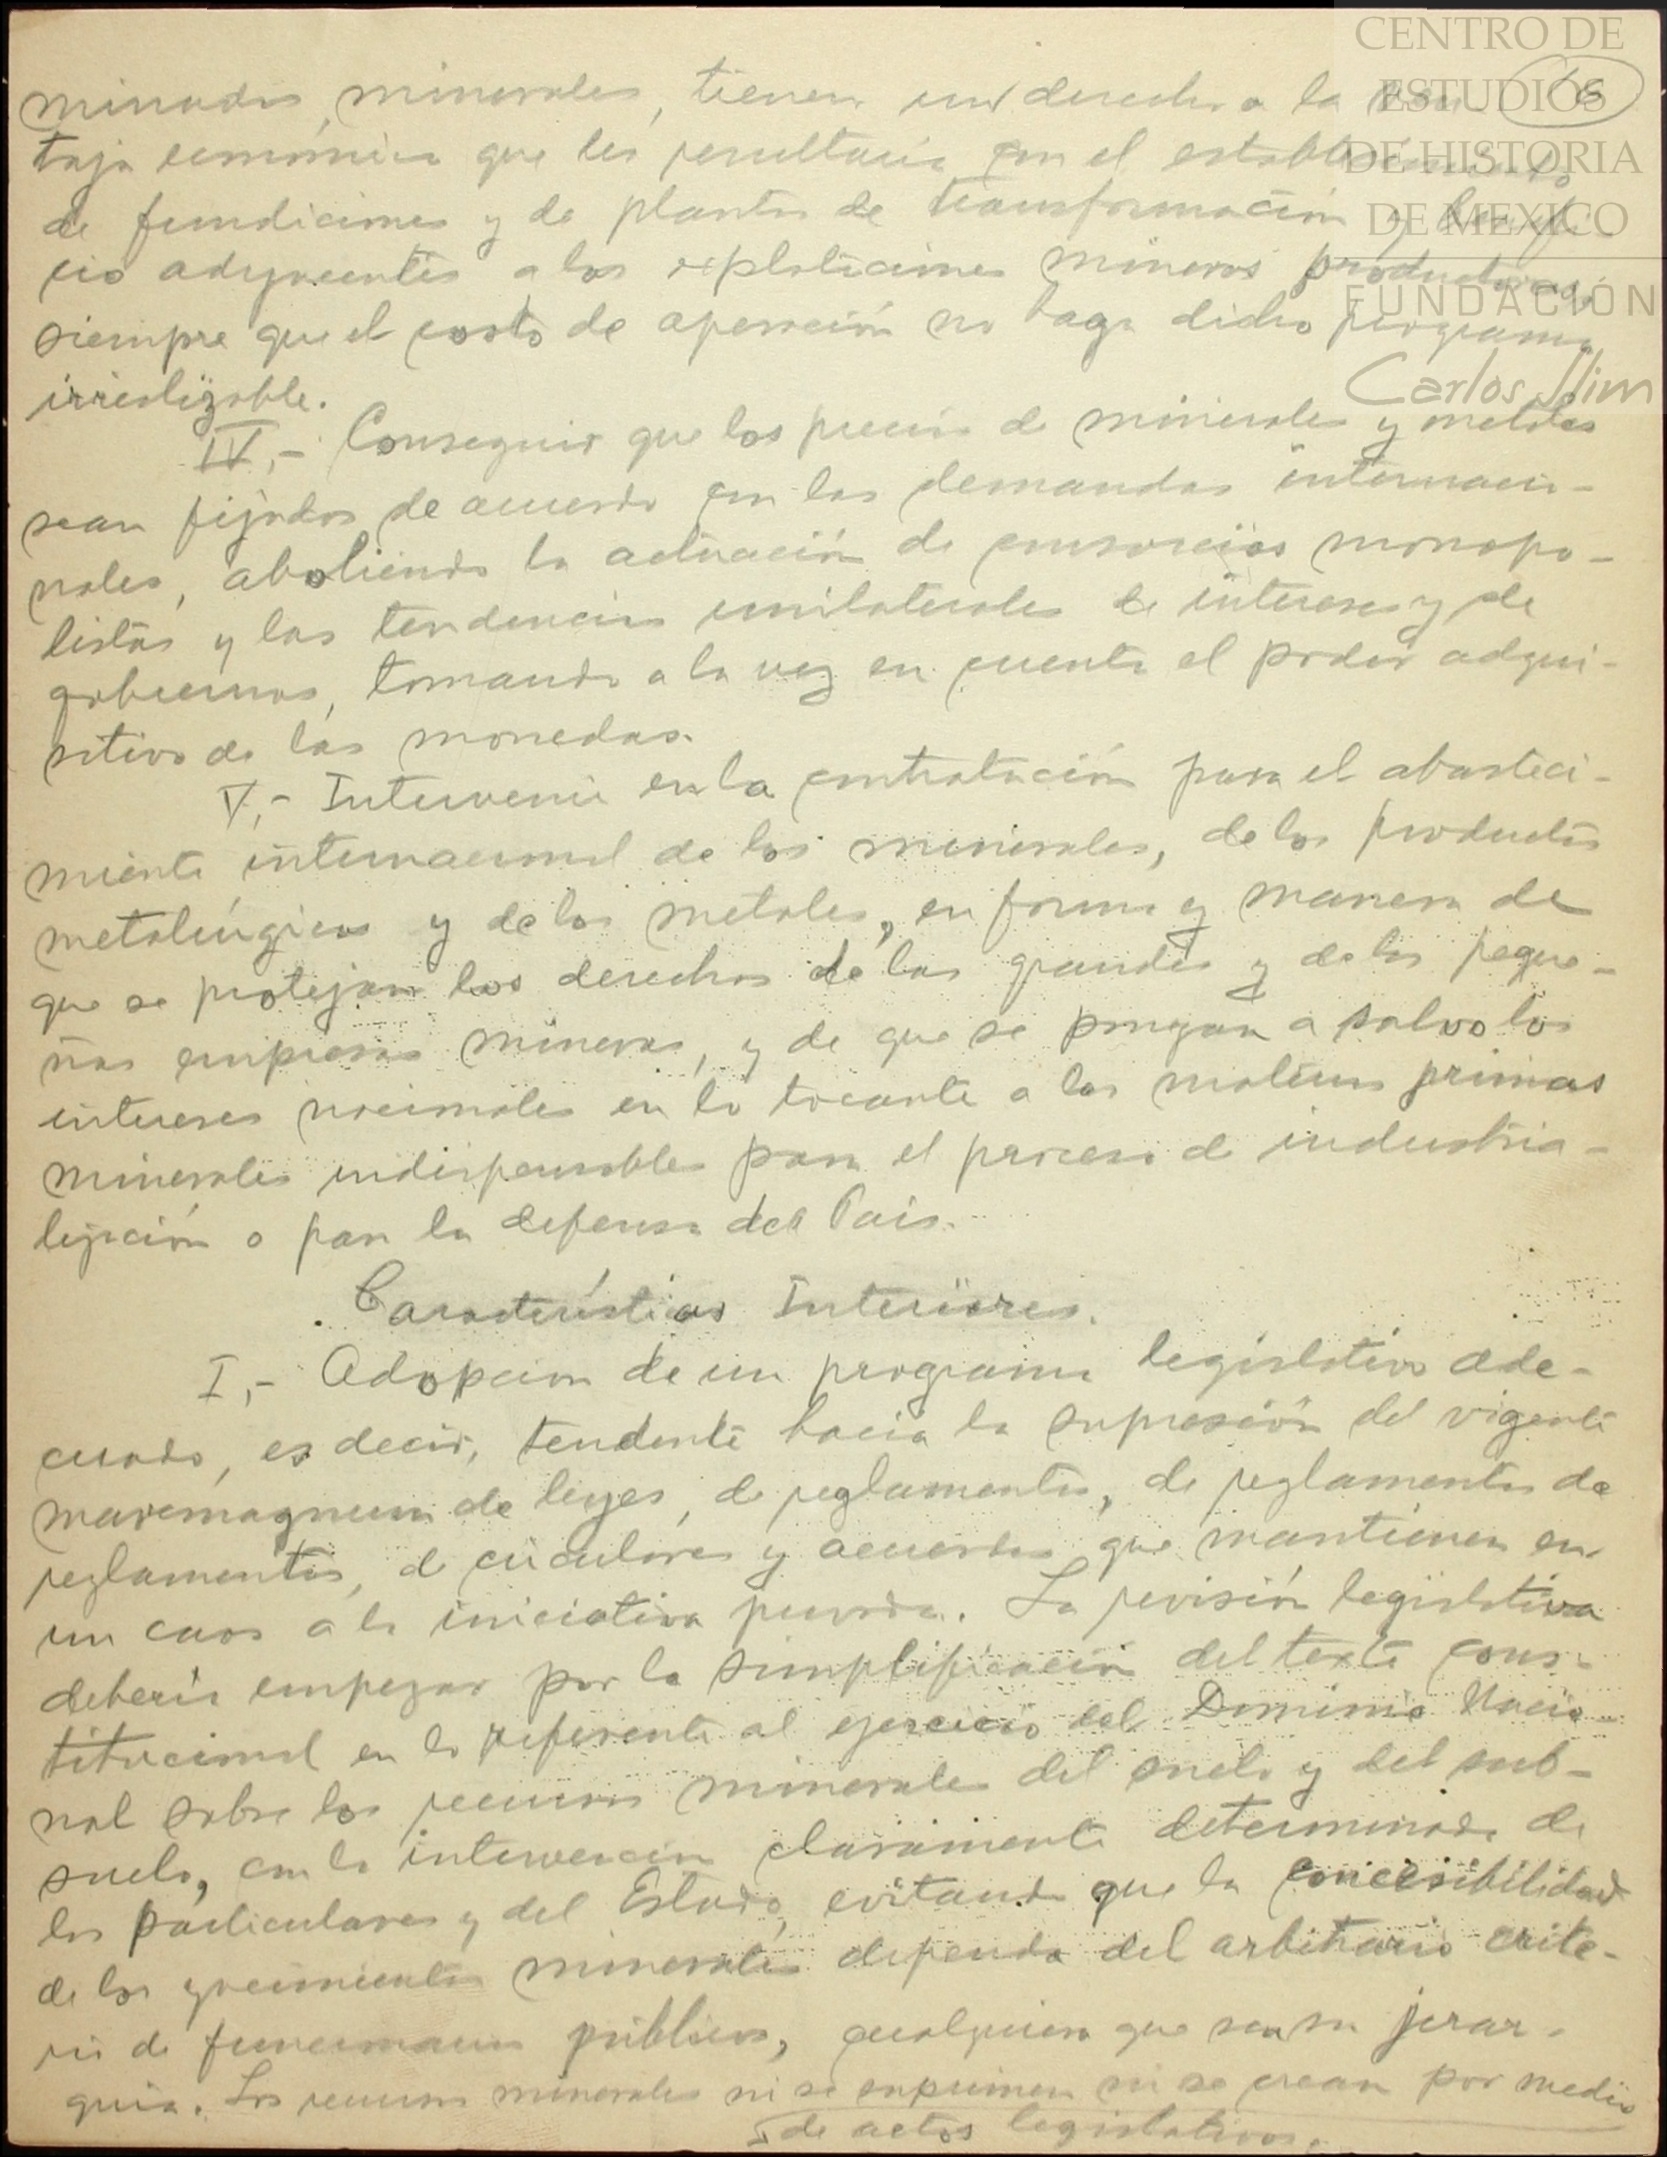 CENTRO DE
ESTUDIOS
DE HISTORIA
DE MEXICO
FUNDACIÓN
Carlos Slim
16
minados minerales, tienen un derecho a la ven-
taja económica que les resultaría con el establecimiento
de fundiciones y de plantas de transformación y benefi-
cio adyacentes a las explotaciones mineras productoras,
siempre que el costo de operación no haga dicho programa
irrealizable.
IV,- Conseguir que los precios de minerales y metales
sean fijados de acuerdo con las demandas internacio-
nales, aboliendo la actuación de consorcios monopo-
listas y las tendencias unilaterales de intereses y de
gobiernos, tomando a la vez en cuenta el poder adqui-
sitivo de las monedas.
V,- Intervenir en la contratación para el abasteci-
miento internacional de los minerales, de los productos
metalúrgicos y de los metales, en forma y manera de
que se protejan los derechos de las grandes y de las peque-
ñas empresas mineras, y de que se pongan a salvo los
intereses nacionales en lo tocante a las materias primas
minerales indispensables para el proceso de industria-
lización o para la defensa del País.
Características Interiores.
I,- Adopcion de un programa legislativo ade-
cuado, es decir, tendente hacia la supresión del vigente
maremagnum de leyes, de reglamentos, de reglamentos de
reglamentos, de circulares y acuerdos que mantienen en
un caos a la iniciativa privada. La revisión legislativa
debería empezar por la simplificación del texto cons-
titucional en lo referente al ejercicio del Dominio Nacio-
nal sobre los recursos minerales del suelo y del sub-
suelo, con la intervención claramente determinada de
los particulares y del Estado, evitando que la concesibilidad
de los yacimientos minerales dependa del arbitrario crite-
rio de funcionarios públicos, cualquiera que sea su jerar-
quía. Los recursos minerales ni se suprimen ni se crean por medio
de actos legislativos.